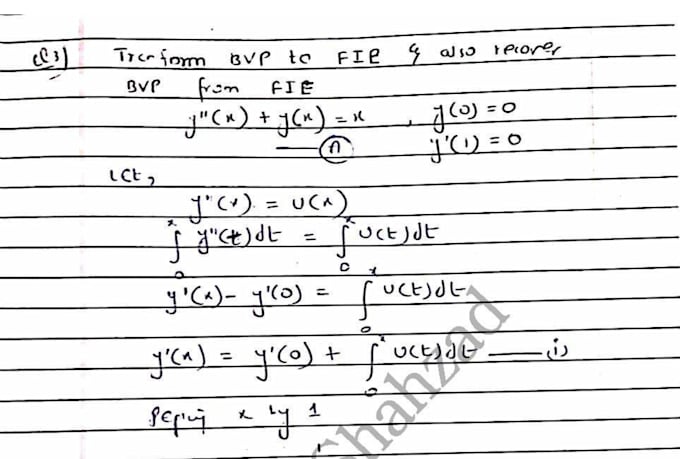 Q3) Transform BVP to FIE & also recover
BVP from FIE
y''(x) + y(x) = x , y(0) = 0
——(A) y'(1) = 0
Let,
y''(x) = u(x)
∫₀ˣ y''(t)dt = ∫₀ˣ u(t)dt
y'(x) - y'(0) = ∫₀ˣ u(t)dt
y'(x) = y'(0) + ∫₀ˣ u(t)dt ——(i)
x by 1
Shahzad